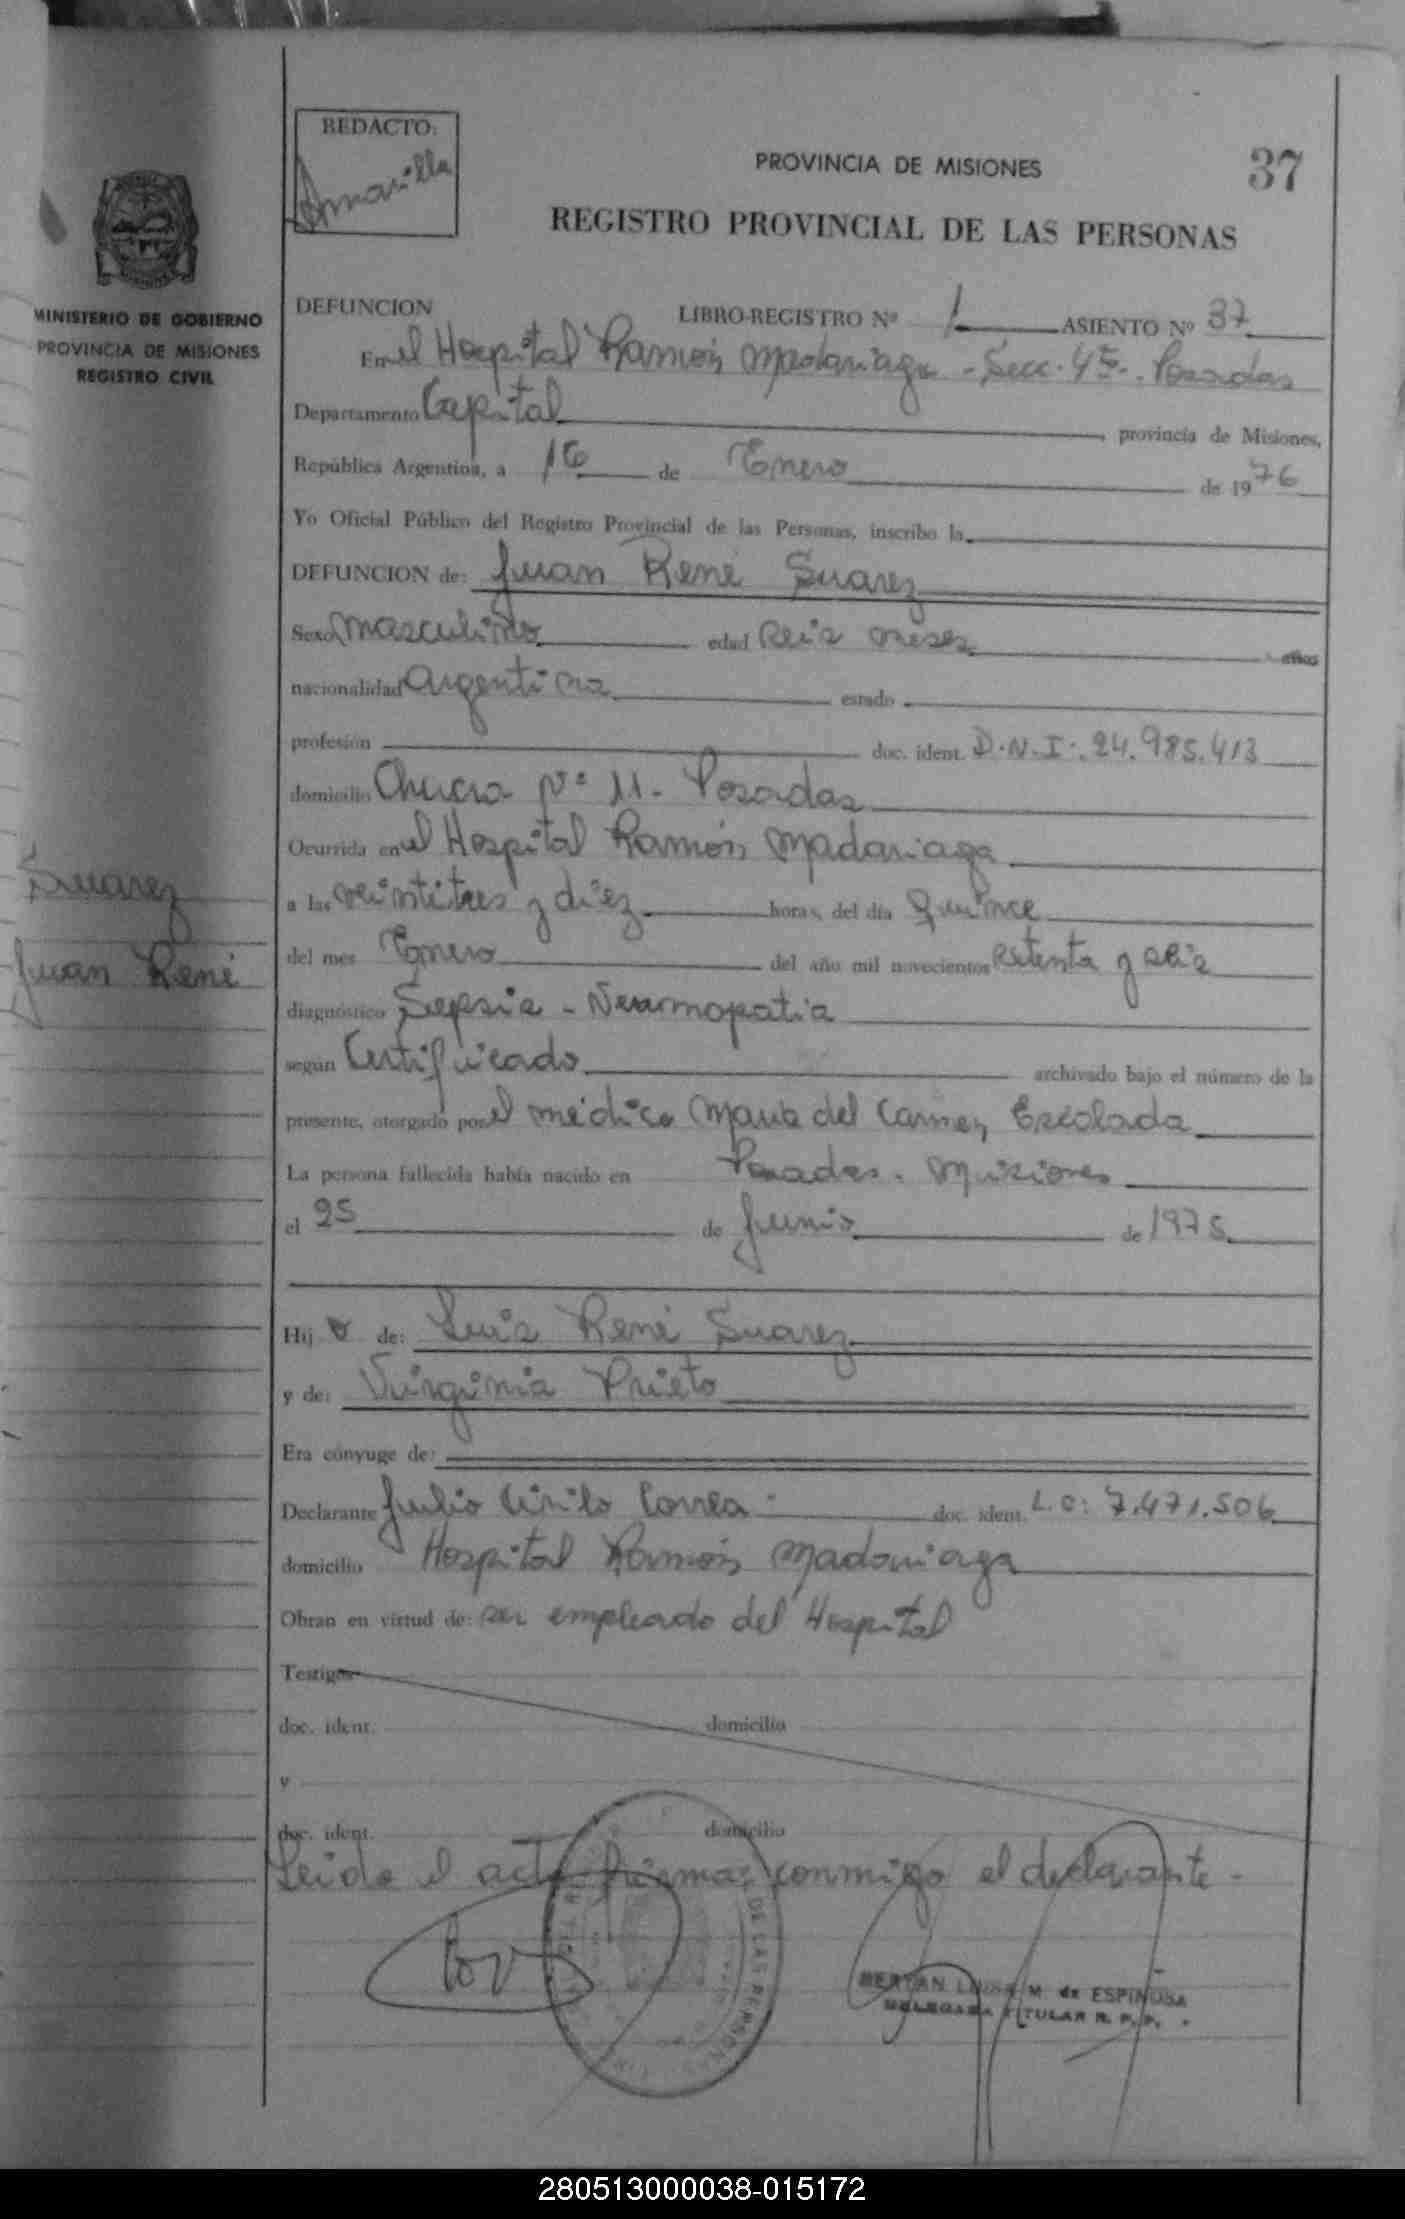 REDACTO:
Amarilla
PROVINCIA DE MISIONES
37
REGISTRO PROVINCIAL DE LAS PERSONAS
MINISTERIO DE GOBIERNO
PROVINCIA DE MISIONES
REGISTRO CIVIL
DEFUNCION LIBRO-REGISTRO Nº 1 ASIENTO Nº 37
En el Hospital Ramón Madariaga - Secc. 4ta. Posadas
Departamento Capital, provincia de Misiones,
República Argentina, a 16 de Enero de 1976
Yo Oficial Público del Registro Provincial de las Personas, inscribo la
DEFUNCION de: Juan René Suarez
Sexo masculino edad seis meses años
nacionalidad Argentina estado
profesión doc. ident. D.N.I: 24.985.413
domicilio Chacra Nº 11 - Posadas
Ocurrida en el Hospital Ramón Madariaga
a las veintitres y diez horas, del día quince
del mes Enero del año mil novecientos setenta y seis
diagnóstico Sepsis - Neumopatia
según Certificado archivado bajo el número de la
presente, otorgado por el médico Maria del Carmen Escolada
La persona fallecida había nacido en Posadas. Misiones
el 25 de Junio de 1975
Suarez
Juan René
Hij o de: Luis René Suarez
y de: Virginia Prieto
Era cónyuge de:
Declarante Julio Cirilo Correa doc. ident. L.C: 7.471.506
domicilio Hospital Ramón Madariaga
Obran en virtud de: ser empleado del Hospital
Testigos
doc. ident. domicilio
y
doc. ident. domicilio
Leida el acta firma conmigo el declarante -
DE LAS PERSONAS
BERTAN LUISA M. de ESPINOSA
DELEGADA TITULAR R. P. P.
280513000038-015172